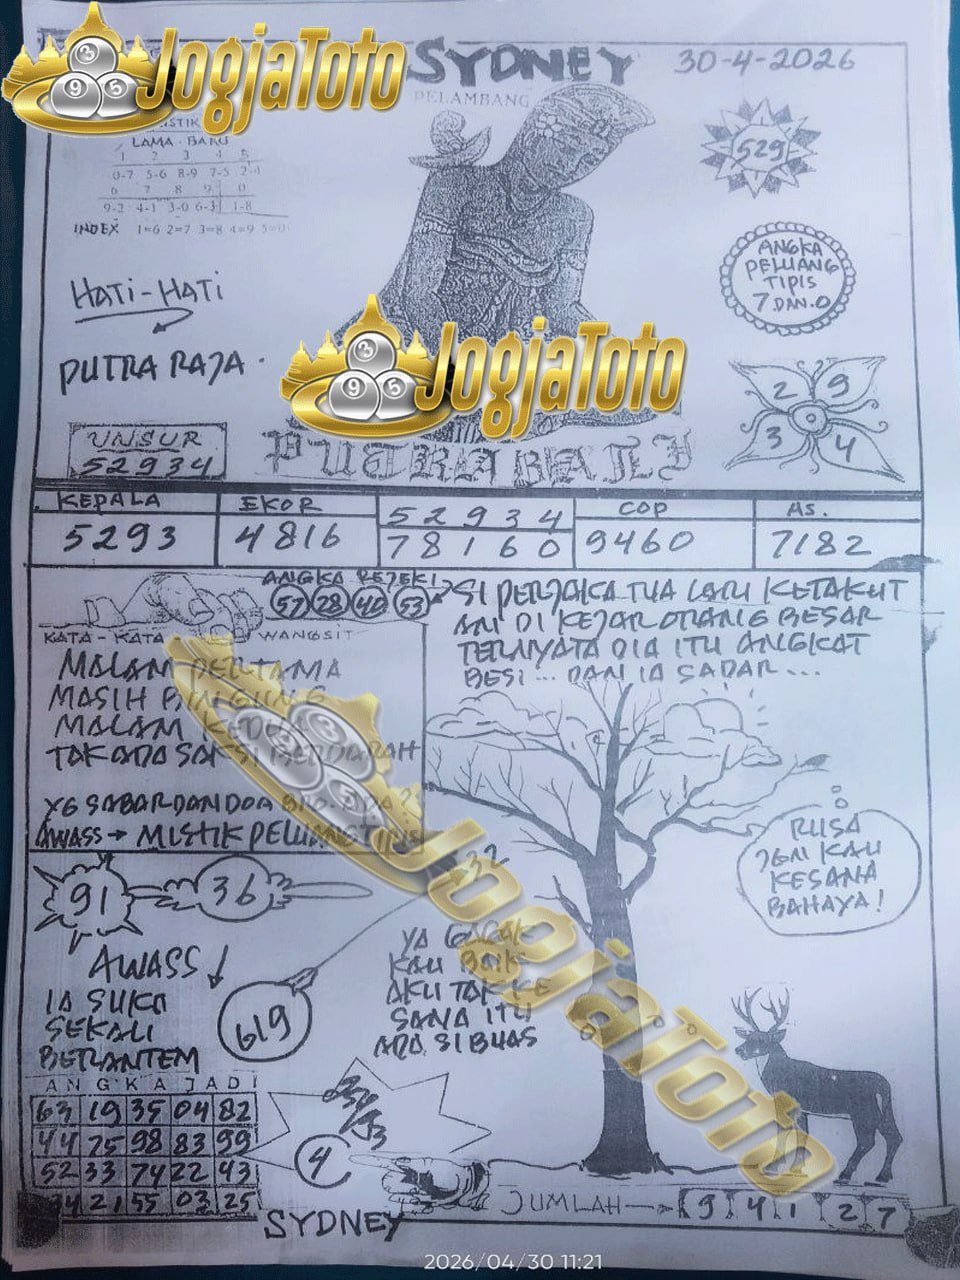 JogjaToto
SYDNEY
30-4-2026
PELAMBANG
LAMA - BARU
1 2 3 4 5
0-7 5-6 8-9 7-5 2-4
6 7 8 9 0
9-2 4-1 3-0 6-3 1-8
INDEX 1=6 2=7 3=8 4=9 5=0
529
ANGKA
PELUANG
TIPIS
7 DAN.0
HATI-HATI
PUTRA RAJA.
JogjaToto
2 9
3 4
UNSUR
52934
PUTRA BALI
KEPALA
EKOR
52934
COP
AS.
5293
4816
78160
9460
7182
ANGKA REJEKI
57 28 40 53
KATA - KATA WANGSIT
MALAM PERTAMA
MASIH BINGUNG
MALAM KEDUA
TAK ADA SAKSI BERDARAH
YG SABAR DAN DOA
AWASS → MISTIK PELUANG TIPIS
SI PERJAKA TUA LARI KETAKUT
AN DI KEJAR ORANG BESAR
TERNYATA DIA ITU ANGKAT
BESI ... DAN IA SADAR ...
RUSA
JGN KAU
KESANA
BAHAYA!
91
36
32
AWASS
IA SUKA
SEKALI
BERLANTEM
619
YA GAGAK
KAU BAIK
AKU TAK KE
SANA ITU
ADA SI BUAS
JogjaToto
ANGKA JADI
63 19 35 04 82
44 75 98 83 99
52 33 74 22 43
21 55 03 25
4
JUMLAH 9 4 1 2 7
SYDNEY
2026/04/30 11:21